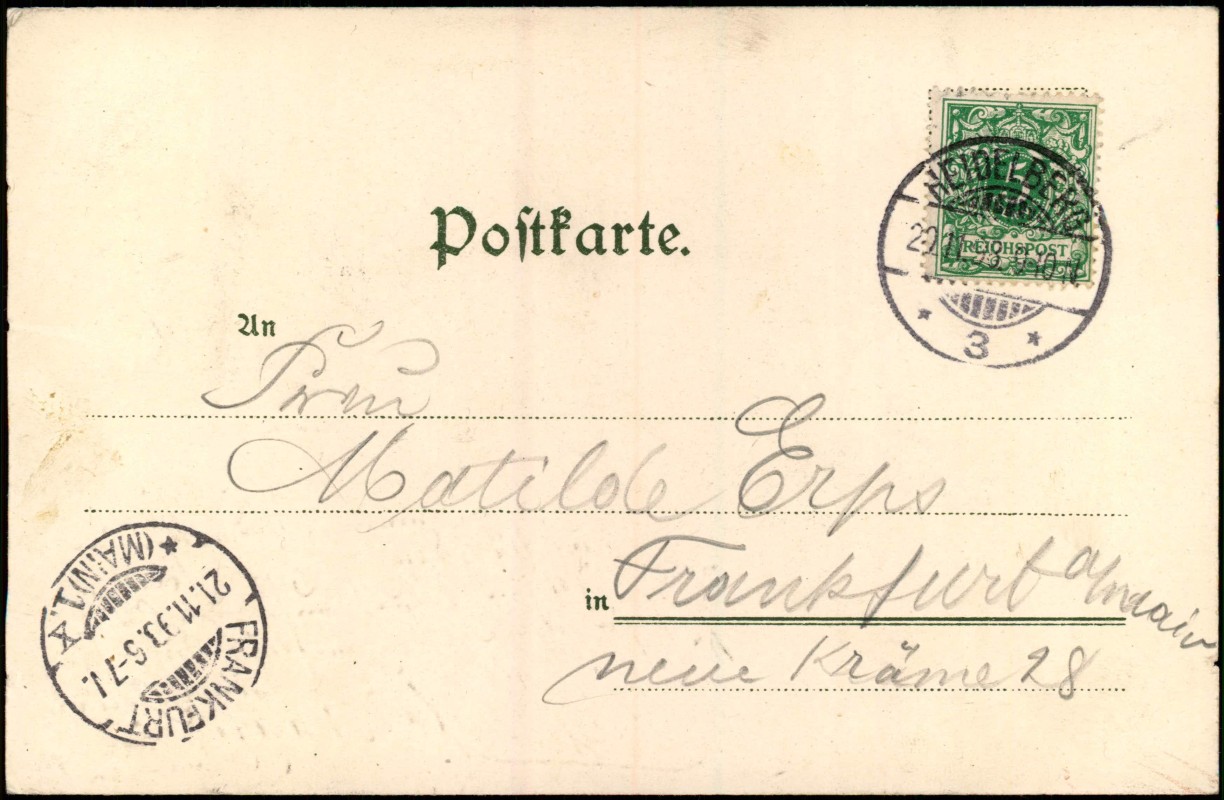 Postkarte.
HEIDELBERG
REICHSPOST
3
An
Frau
Matilde Erps
in Frankfurt a/Main
neue Kräme 28
FRANKFURT (MAIN) 1.
21.11.93. 6-7